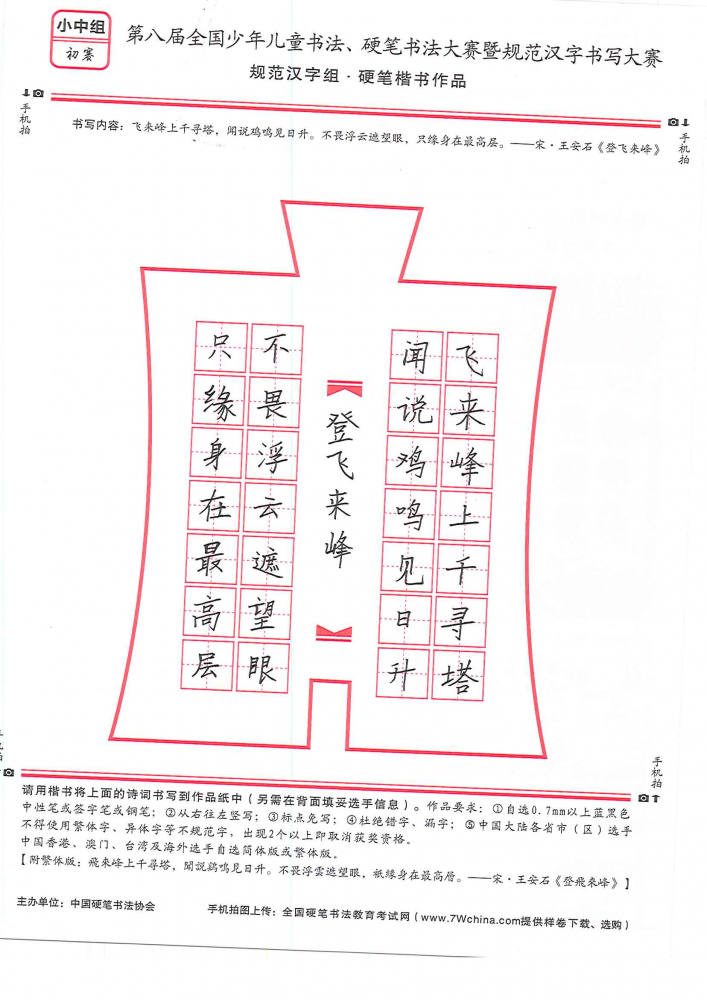 小中组
初赛
第八届全国少年儿童书法、硬笔书法大赛暨规范汉字书写大赛
规范汉字组·硬笔楷书作品
手机拍
手机拍
书写内容：飞来峰上千寻塔，闻说鸡鸣见日升。不畏浮云遮望眼，只缘身在最高层。——宋·王安石《登飞来峰》
飞来峰上千寻塔
闻说鸡鸣见日升
登飞来峰
不畏浮云遮望眼
只缘身在最高层
手机拍
请用楷书将上面的诗词书写到作品纸中（另需在背面填妥选手信息）。作品要求：①自选0.7mm以上蓝黑色
中性笔或签字笔或钢笔；②从右往左竖写；③标点免写；④杜绝错字、漏字；⑤中国大陆各省市（区）选手
不得使用繁体字、异体字等不规范字，出现2个以上即取消获奖资格。
中国香港、澳门、台湾及海外选手自选简体版或繁体版。
【附繁体版：飛來峰上千尋塔，聞說鷄鳴見日升。不畏浮雲遮望眼，祇緣身在最高層。——宋·王安石《登飛來峰》】
主办单位：中国硬笔书法协会
手机拍图上传：全国硬笔书法教育考试网（www.7Wchina.com提供样卷下载、选购）